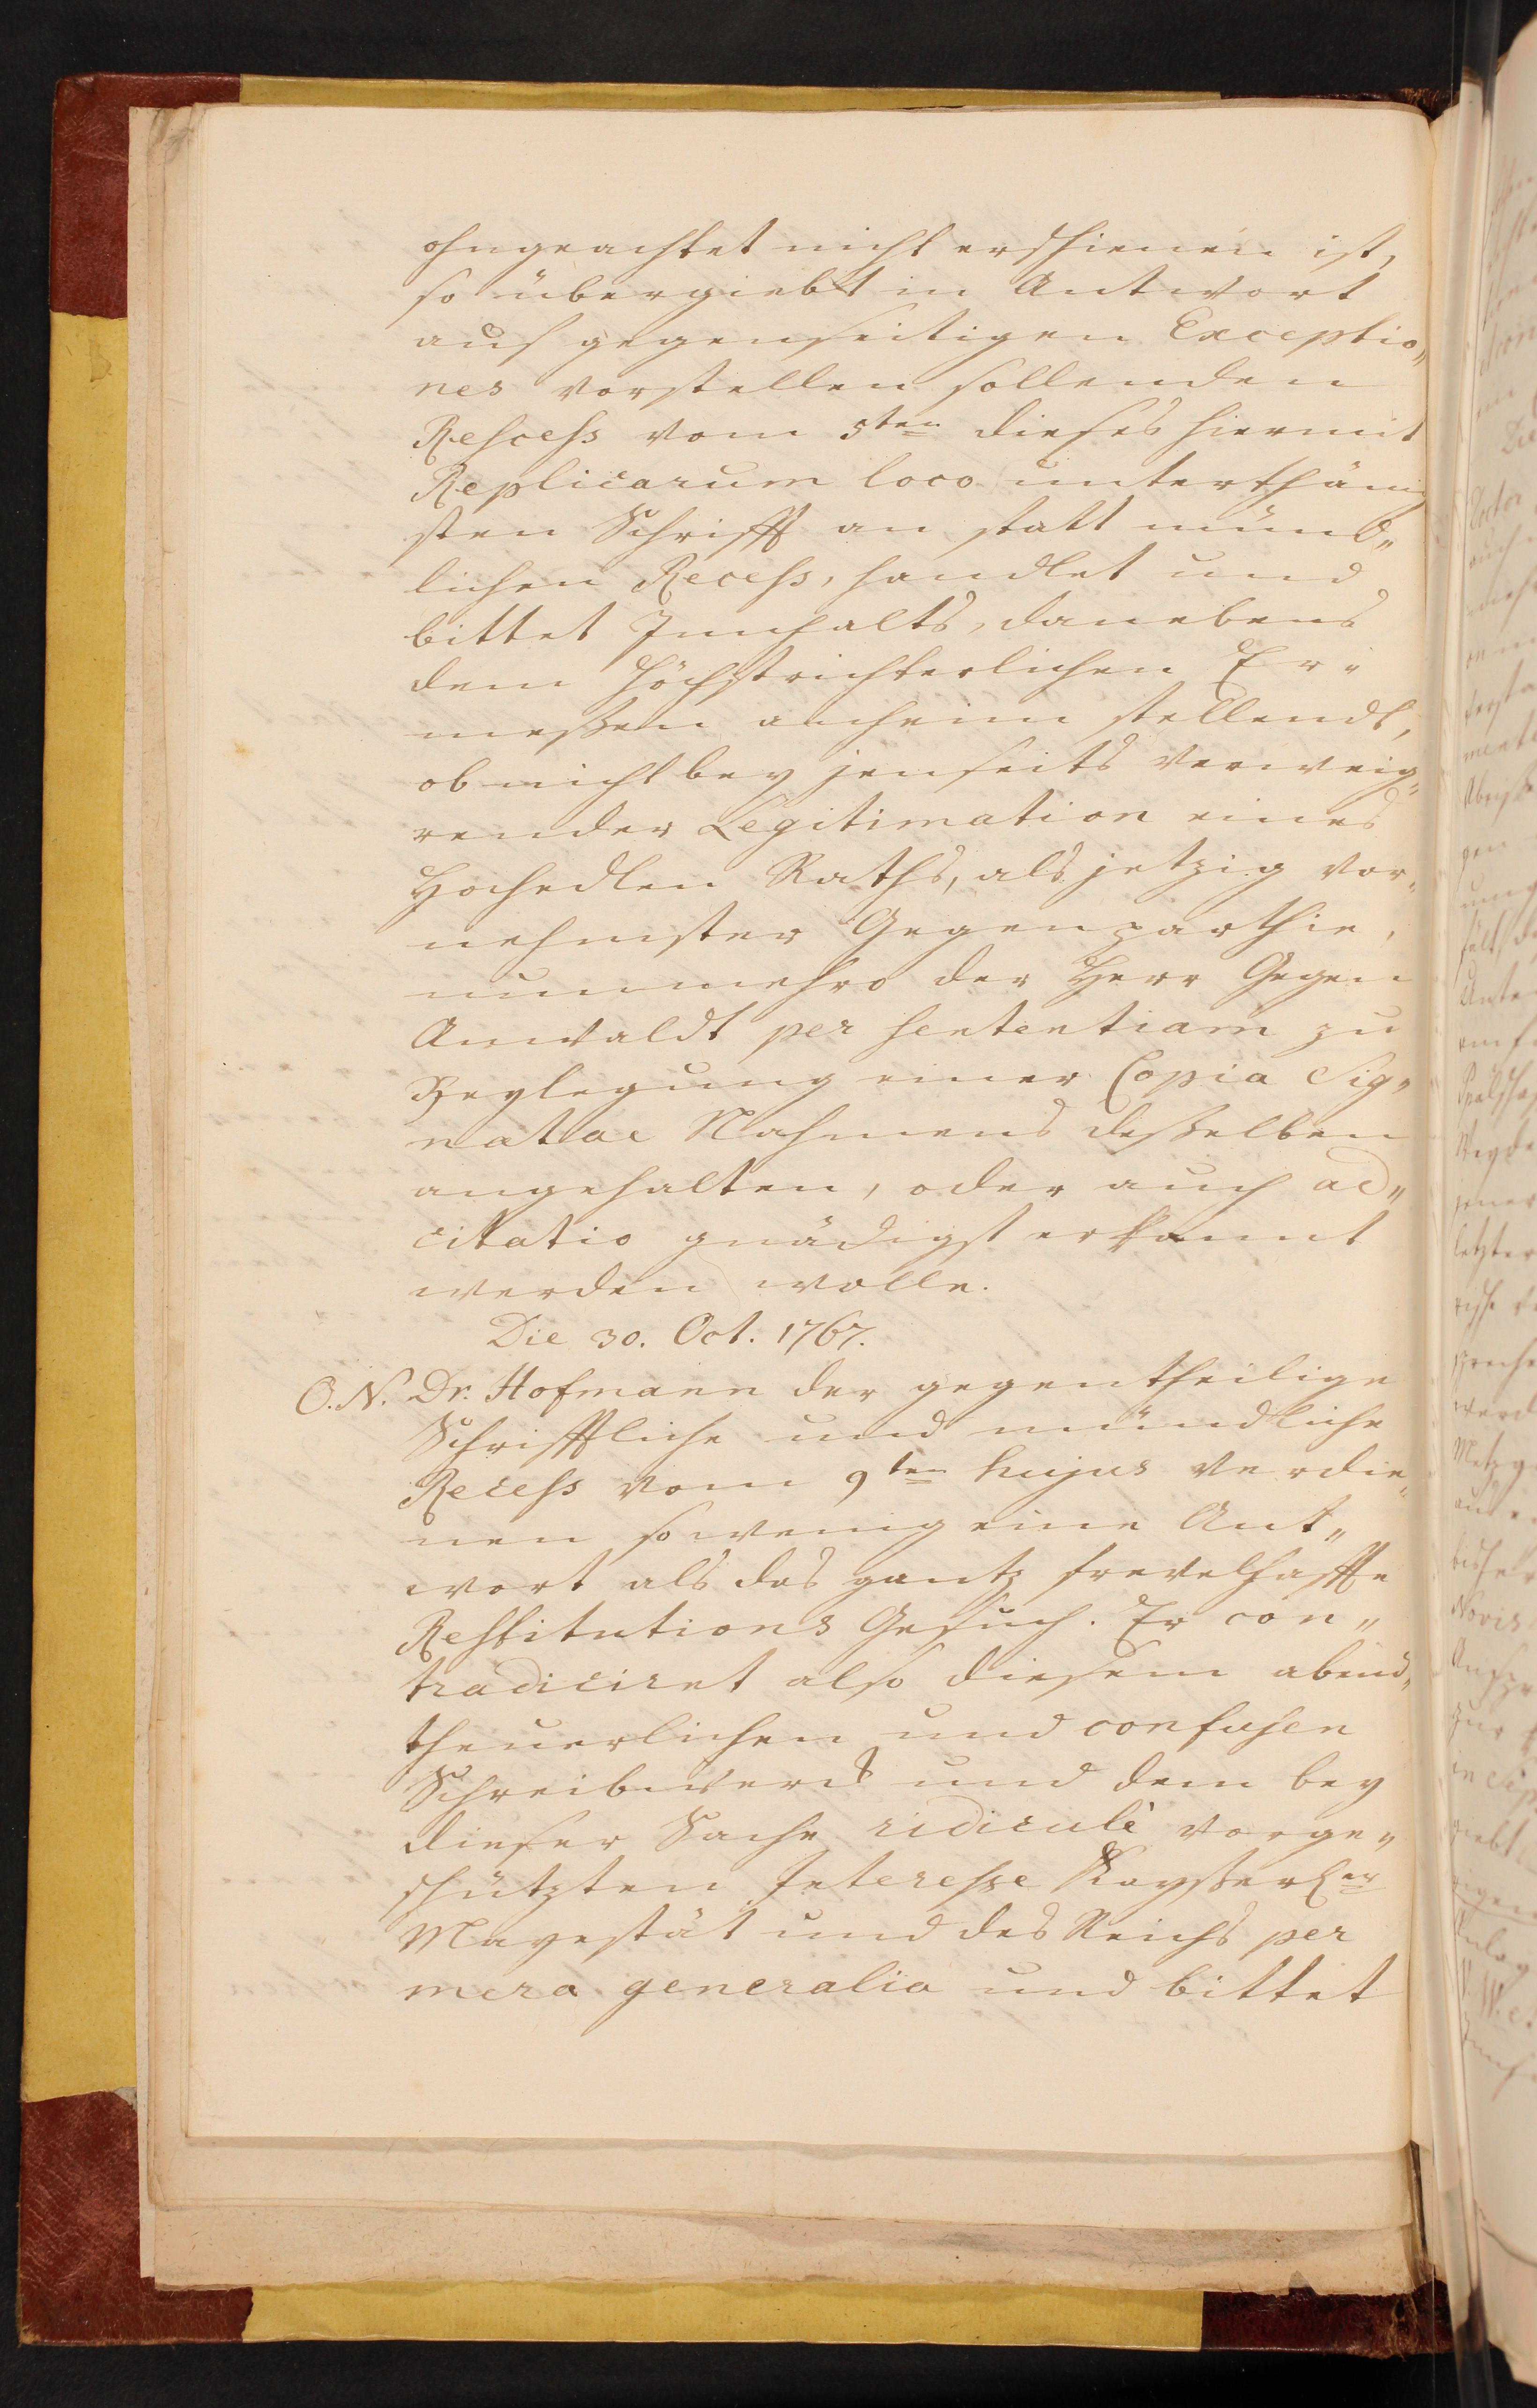 ohngeachtet nicht erschienen ist,
so übergiebt in Antwort
auf gegenseitigen Exceptio„
nes vorstellen sollenden
Rescess vom 5ten dieses hiermit
Replicarum loco unterthänig
sten Schrifft an statt münd„
lichen Recess, handlet und
bittet Innhalts, danebens
dem Höchstrichterlichen Er„
meßen anheim stellendt,
ob nicht bey jenseits verweig„
render Legitimation eines
Hochedlen Raths, als jetzig vor„
nehmster Gegenparthie,
nunmehro der Herr Gegen
Anwaldt per sententiam zu
Beylegung einer Copia Sig„
natae Nahmens deßelben
angehalten, oder auch ad„
citatio gnädigst erkannt
werden wolle.
Die 30. Oct. 1767.
O.N. Dr. Hofmann der gegentheilige
Schrifftliche und mündliche
Recess vom 9ten hujus verdie„
nen so wenig eine Ant„
wort als das gantz frevelhaffte
Restitutions Gesuch. Er con„
tradiciret also diesem abend„
theuerlichen und confusen
Schreibwerck und dem bey
dieser Sache ridiculè vorge„
schützten Interesse Kayßerler
Mayestät und des Reichs per
mera generalia und bittet